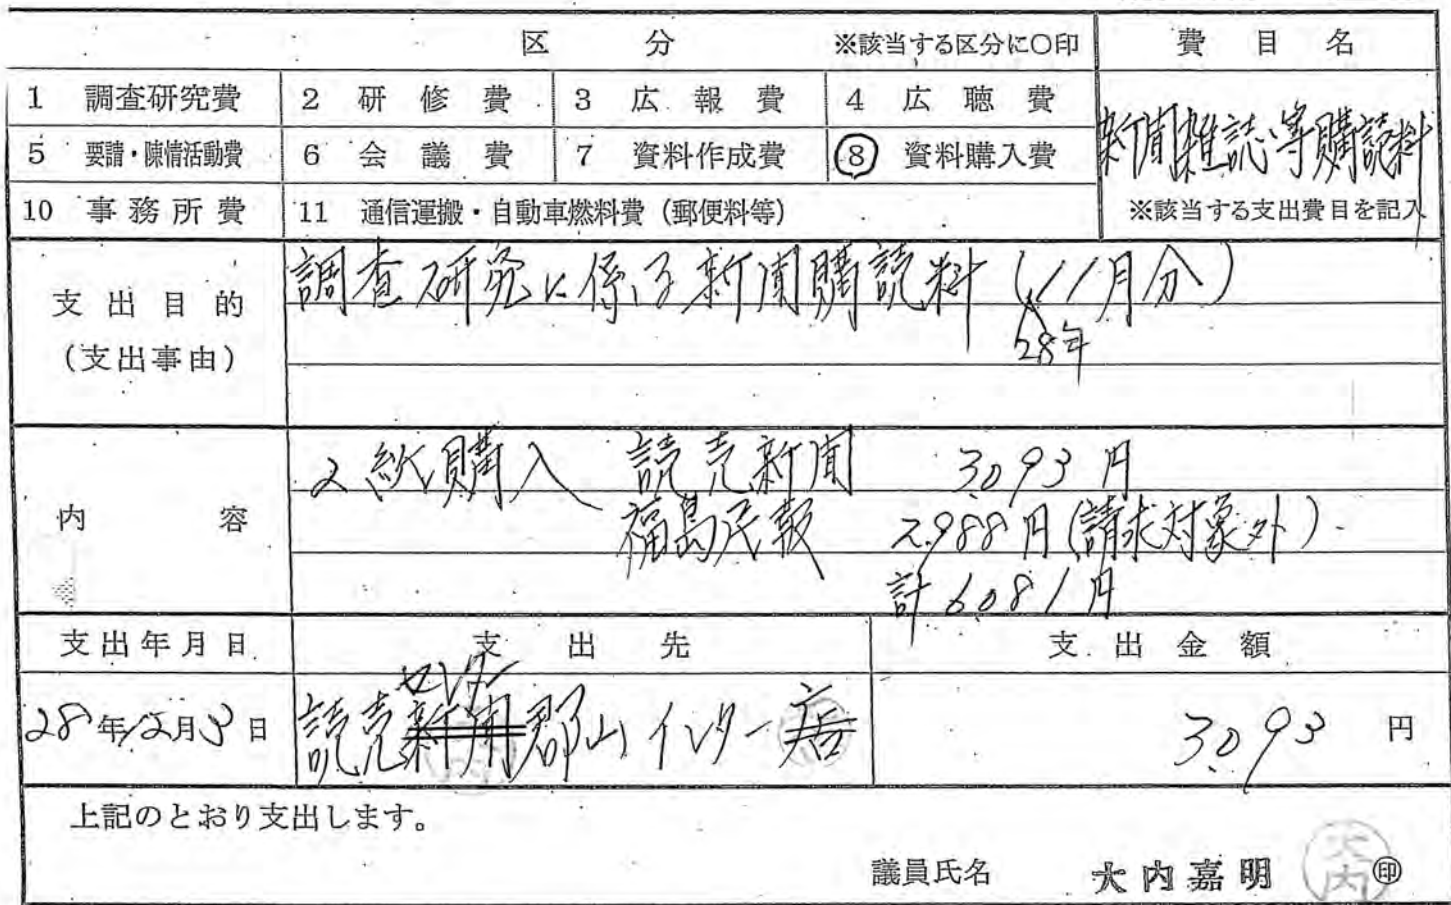 区 分 ※該当する区分に○印 費 目 名
1 調査研究費 2 研 修 費 3 広 報 費 4 広 聴 費
新聞雑誌等購読料
5 要請・陳情活動費 6 会 議 費 7 資料作成費 ⑧ 資料購入費
10 事 務 所 費 11 通信運搬・自動車燃料費（郵便料等） ※該当する支出費目を記入
支 出 目 的
（支出事由）
調査研究に係る新聞購読料（11月分）
28年
内 容
2紙購入 読売新聞 3,093円
福島民報 2,988円（請求対象外）
計6,081円
支出年月日 支 出 先 支 出 金 額
センター
28年12月3日 読売新聞郡山インター店 3,093 円
上記のとおり支出します。
議員氏名 大内嘉明 大内 ㊞